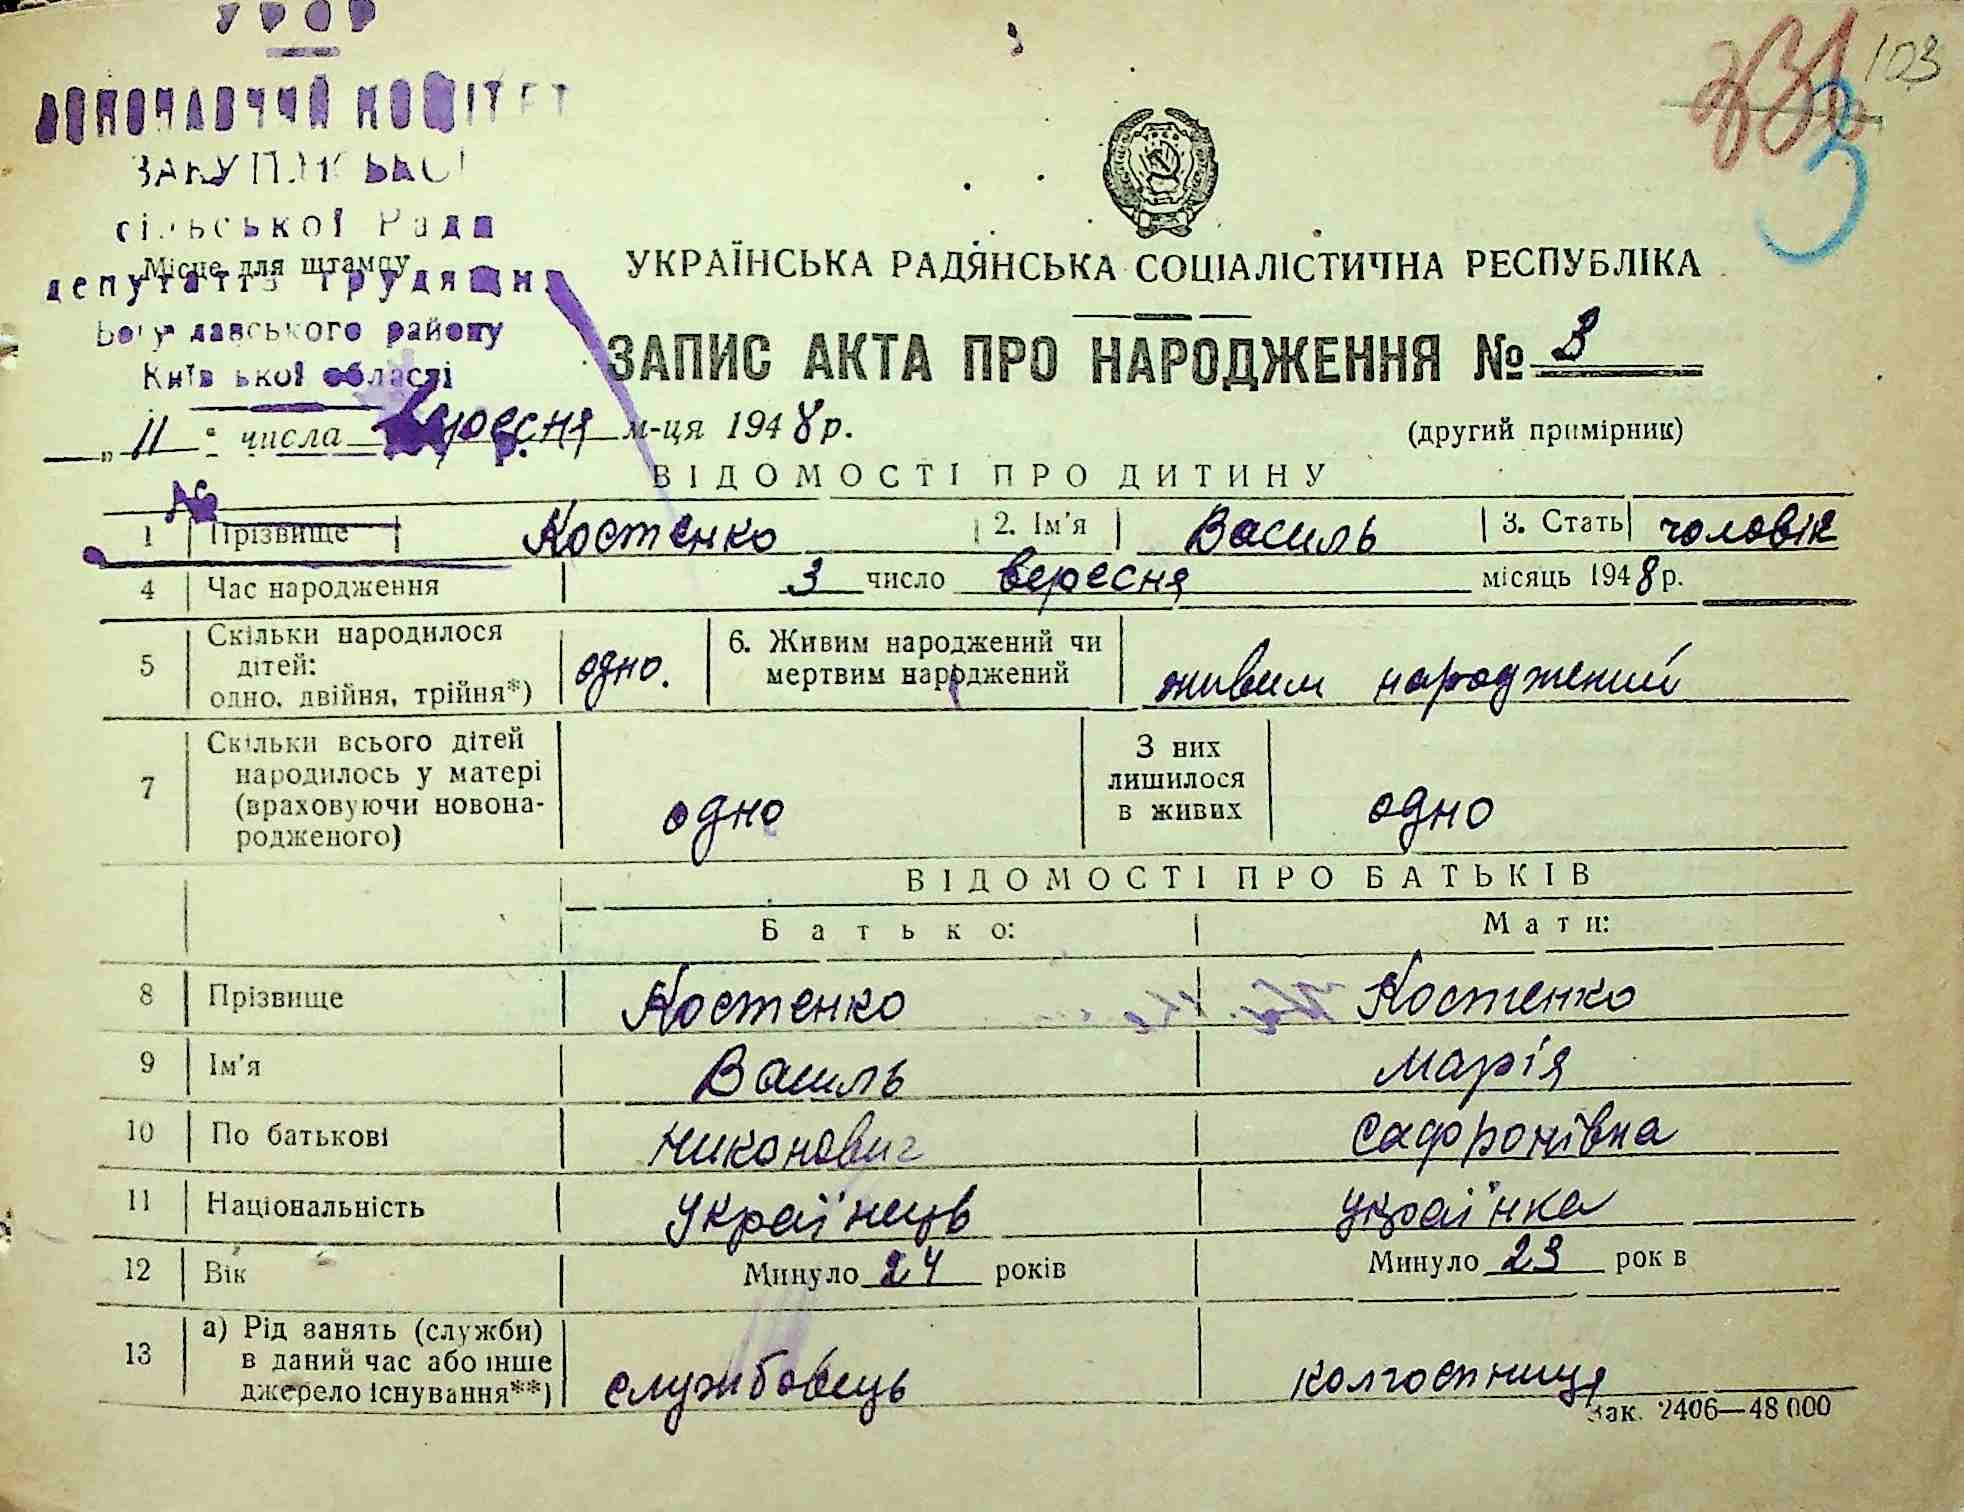 УРСР
103
ВИКОНАВЧИЙ КОМІТЕТ
3
сільської Ради
Місце для штампу
депутатів трудящих
Богуславського району
Київської області
УКРАЇНСЬКА РАДЯНСЬКА СОЦІАЛІСТИЧНА РЕСПУБЛІКА
ЗАПИС АКТА ПРО НАРОДЖЕННЯ № 3
„11" числа вересня м-ця 1948 р.
(другий примірник)
ВІДОМОСТІ ПРО ДИТИНУ
1 Прізвище Костенко 2. Ім'я Василь 3. Стать чоловік
4 Час народження 3 число вересня місяць 1948 р.
5 Скільки народилося дітей: одно, двійня, трійня*) одно. 6. Живим народжений чи мертвим народжений живим народжений
7 Скільки всього дітей народилось у матері (враховуючи новонародженого) одно З них лишилося в живих одно
ВІДОМОСТІ ПРО БАТЬКІВ
Батько: Мати:
8 Прізвище Костенко Костенко
9 Ім'я Василь Марія
10 По батькові Никонович Сафронівна
11 Національність Українець українка
12 Вік Минуло 24 років Минуло 23 рок в
13 а) Рід занять (служби) в даний час або інше джерело існування**) службовець колгоспниця
Зак. 2406—48 000